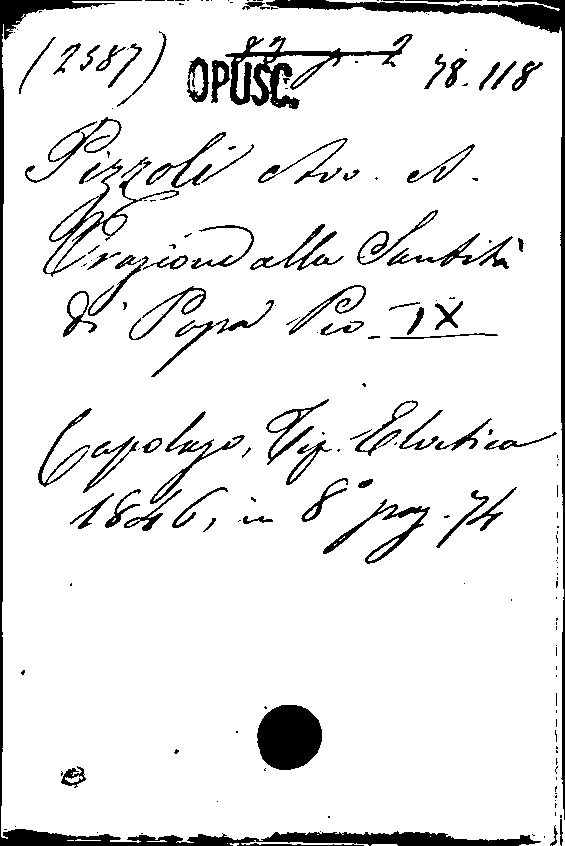 (2587) 82 p. 2 78.118
OPUSC.
Pizzoli Avv. A.
Orazione alla Santità
di Papa Pio IX
Capolago, Tip. Elvetica
1846, in 8° pag. 74